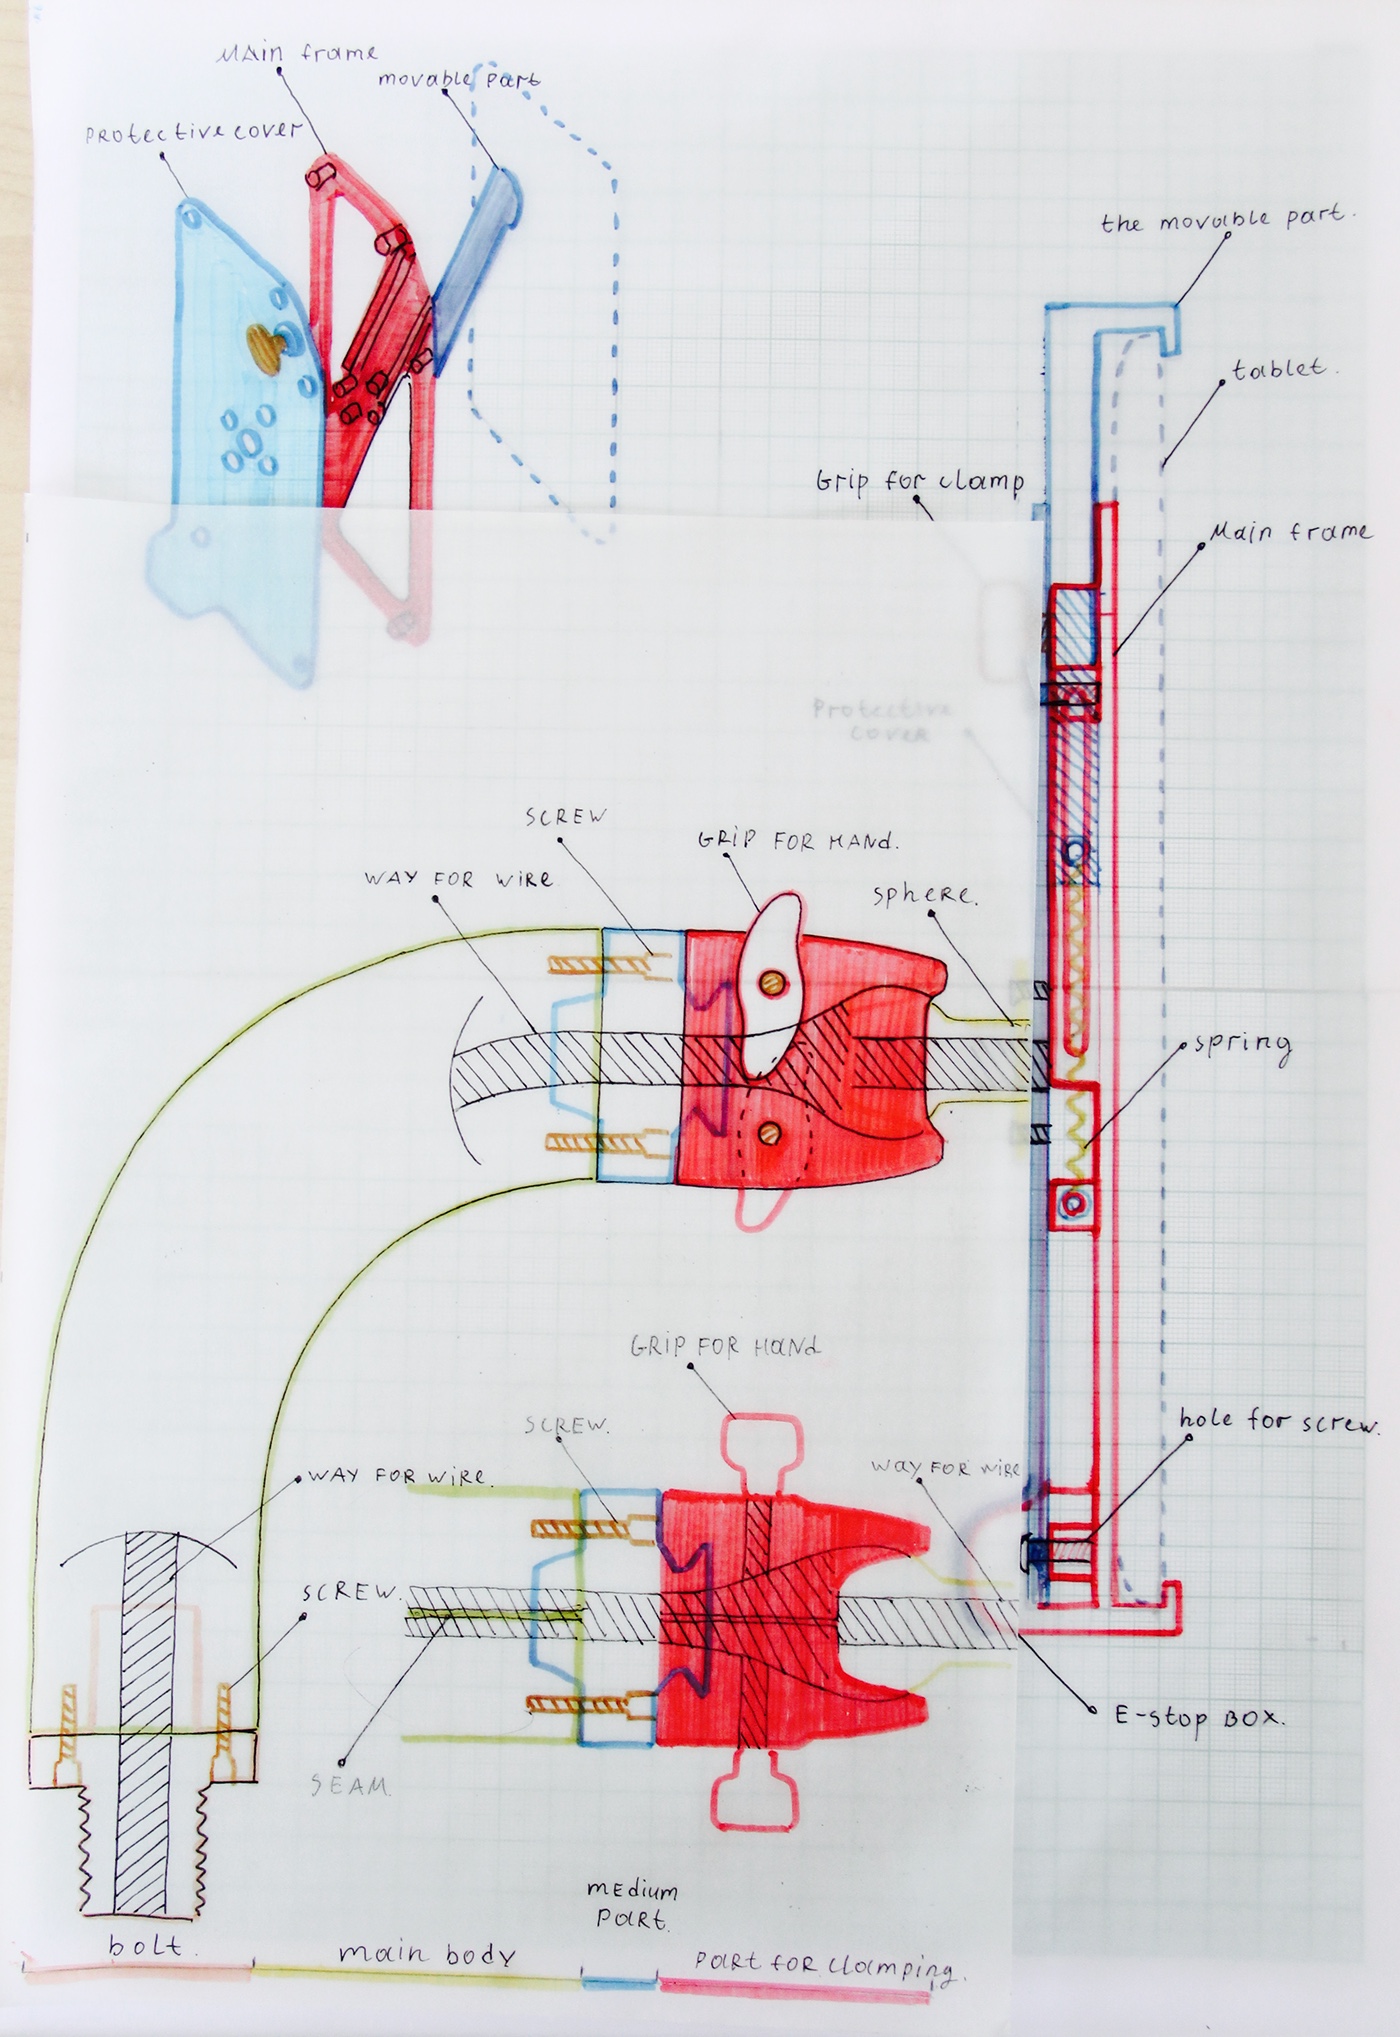 Main frame
movable part
Protective cover
the movable part.
tablet.
Grip for clamp
Main frame
Protective
cover
SCREW
GRIP FOR HANd.
WAY FOR WIRE
SPHERE.
spring
GRIP FOR HANd
SCREW.
hole for screw.
WAY FOR WIRE
WAY FOR WIRE.
SCREW.
E-STOP BOX.
SEAM.
MEdium
PART.
bolt.
main body
PART FOR clamping.